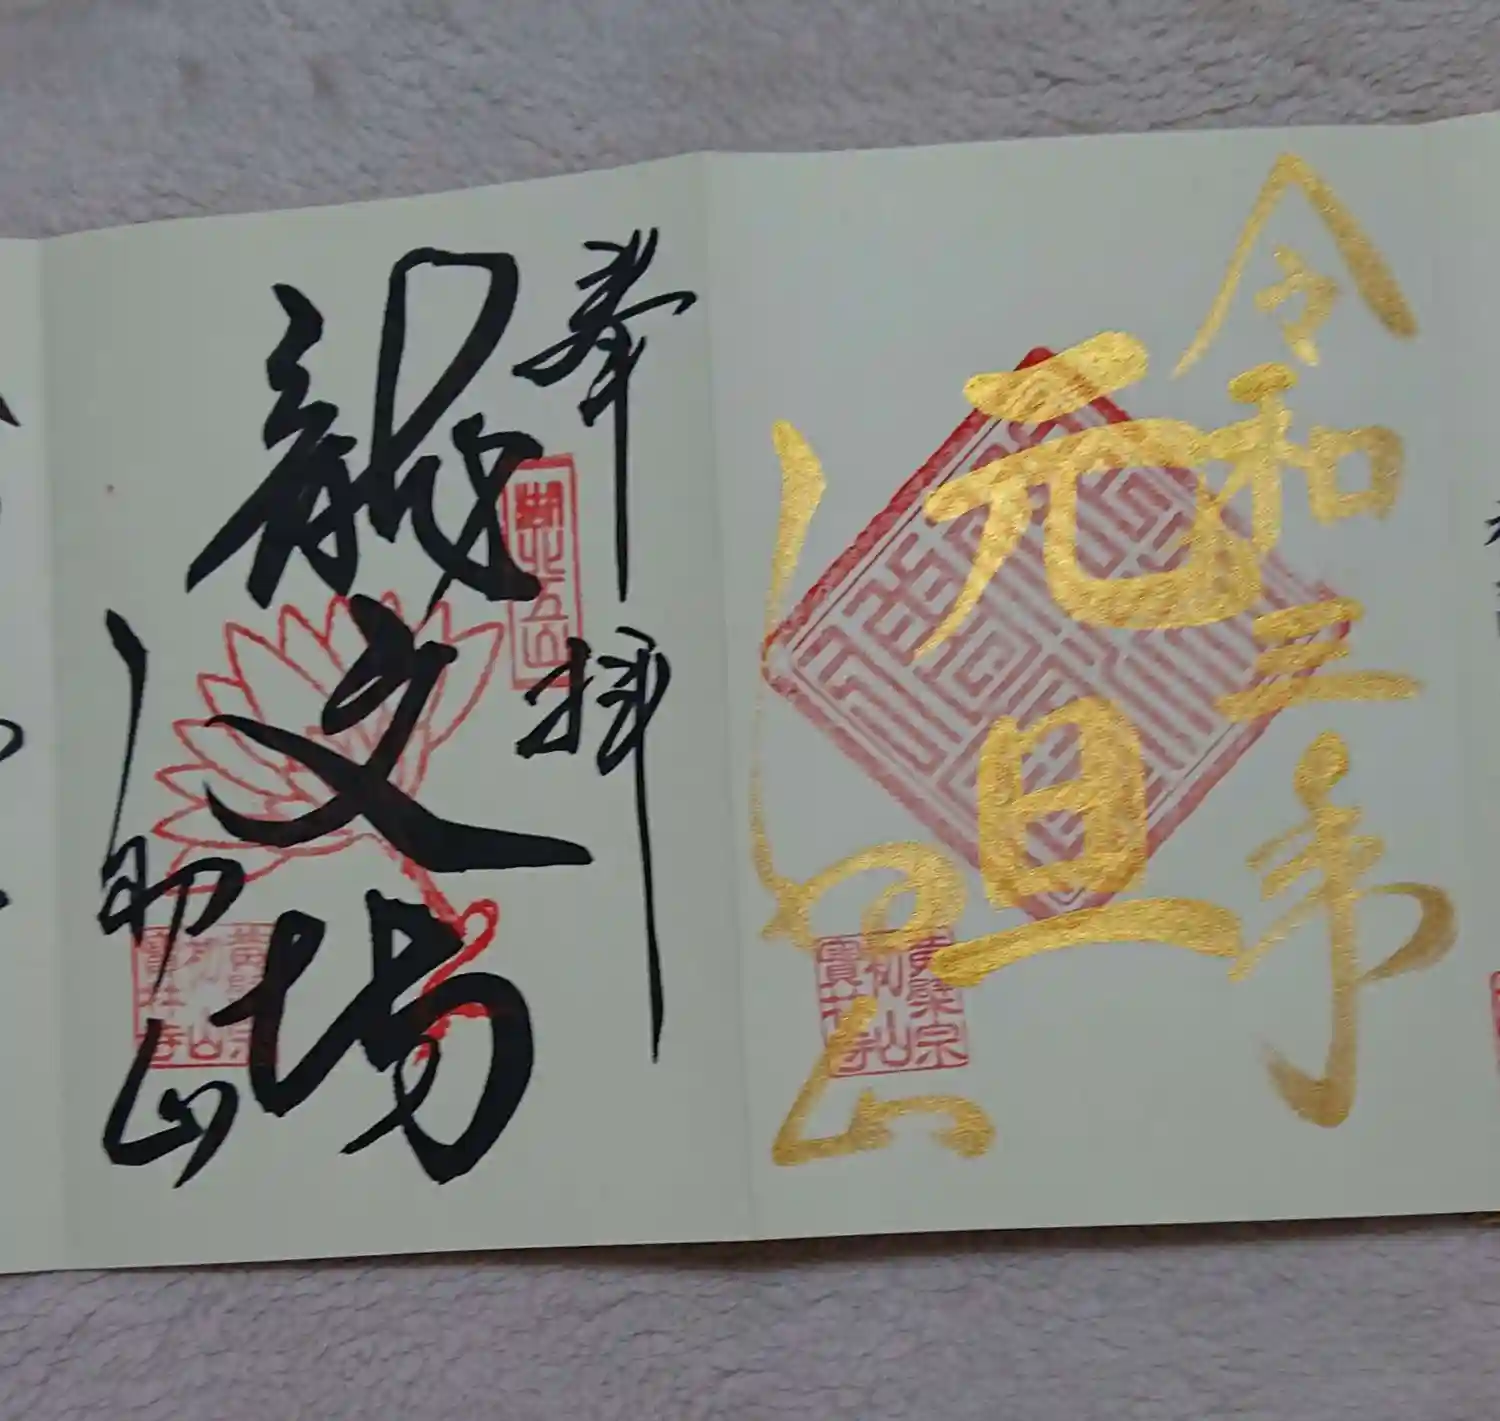 令和三年
元旦
初山
黄檗宗
初山
寳林寺
奉拝
湖北五山
龍文場
初山
黄檗宗
初山
寳林寺